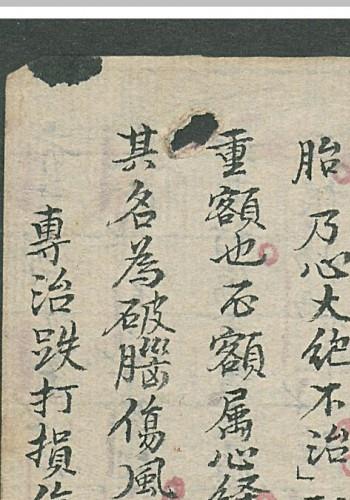 胎 乃心大絶不治」
重額也 石額属心経
其名為破腦傷風
專治跌打損傷